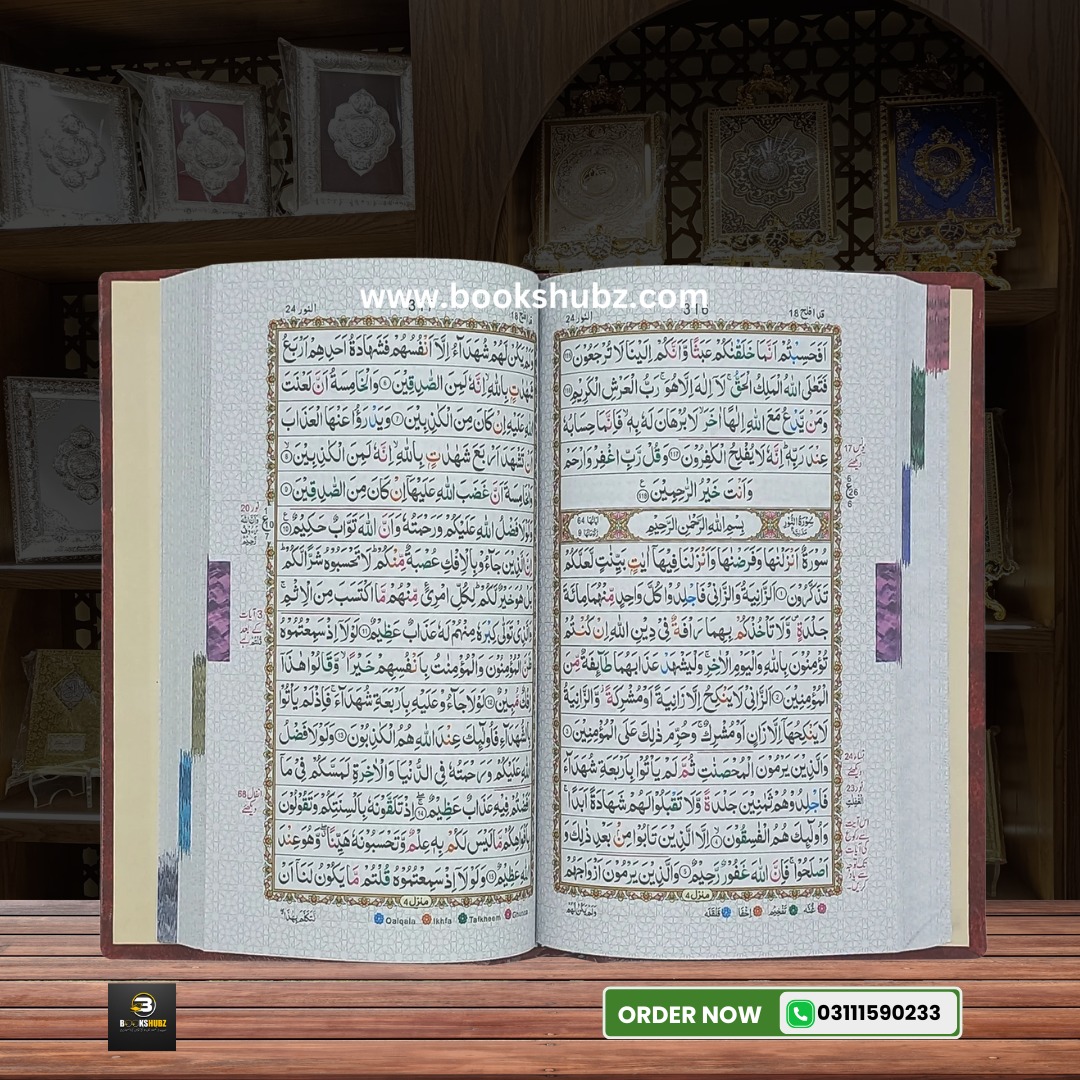 www.bookshubz.com
قد افلح 18
316
النور 24
اَفَحَسِبْتُمْ اَنَّمَا خَلَقْنٰكُمْ عَبَثًا وَّاَنَّكُمْ اِلَيْنَا لَا تُرْجَعُوْنَ ١١٥
فَتَعٰلَى اللّٰهُ الْمَلِكُ الْحَقُّ ۚ لَاۤ اِلٰهَ اِلَّا هُوَ ۚ رَبُّ الْعَرْشِ الْكَرِيْمِ ١١٦
وَمَنْ يَّدْعُ مَعَ اللّٰهِ اِلٰهًا اٰخَرَ ۙ لَا بُرْهَانَ لَهٗ بِهٖ ۙ فَاِنَّمَا حِسَابُهٗ
عِنْدَ رَبِّهٖ ؕ اِنَّهٗ لَا يُفْلِحُ الْكٰفِرُوْنَ ١١٧ وَقُلْ رَّبِّ اغْفِرْ وَارْحَمْ
وَاَنْتَ خَيْرُ الرّٰحِمِيْنَ ١١٨
سُوْرَةُ النُّوْرِ مَدَنِيَّةٌ بِسْمِ اللّٰهِ الرَّحْمٰنِ الرَّحِيْمِ اٰيَاتُهَا 64 رُكُوْعَاتُهَا 9
سُوْرَةٌ اَنْزَلْنٰهَا وَفَرَضْنٰهَا وَاَنْزَلْنَا فِيْهَاۤ اٰيٰتٍۭ بَيِّنٰتٍ لَّعَلَّكُمْ
تَذَكَّرُوْنَ ١ اَلزَّانِيَةُ وَالزَّانِيْ فَاجْلِدُوْا كُلَّ وَاحِدٍ مِّنْهُمَا مِائَةَ
جَلْدَةٍ ۪ وَّلَا تَاْخُذْكُمْ بِهِمَا رَاْفَةٌ فِيْ دِيْنِ اللّٰهِ اِنْ كُنْتُمْ
تُؤْمِنُوْنَ بِاللّٰهِ وَالْيَوْمِ الْاٰخِرِ ۚ وَلْيَشْهَدْ عَذَابَهُمَا طَآئِفَةٌ مِّنَ
الْمُؤْمِنِيْنَ ٢ اَلزَّانِيْ لَا يَنْكِحُ اِلَّا زَانِيَةً اَوْ مُشْرِكَةً ؗ وَّالزَّانِيَةُ
لَا يَنْكِحُهَاۤ اِلَّا زَانٍ اَوْ مُشْرِكٌ ۚ وَحُرِّمَ ذٰلِكَ عَلَى الْمُؤْمِنِيْنَ ٣
وَالَّذِيْنَ يَرْمُوْنَ الْمُحْصَنٰتِ ثُمَّ لَمْ يَاْتُوْا بِاَرْبَعَةِ شُهَدَآءَ
فَاجْلِدُوْهُمْ ثَمٰنِيْنَ جَلْدَةً وَّلَا تَقْبَلُوْا لَهُمْ شَهَادَةً اَبَدًا ۚ
وَاُولٰٓئِكَ هُمُ الْفٰسِقُوْنَ ٤ اِلَّا الَّذِيْنَ تَابُوْا مِنْۢ بَعْدِ ذٰلِكَ وَ
اَصْلَحُوْا ۚ فَاِنَّ اللّٰهَ غَفُوْرٌ رَّحِيْمٌ ٥ وَالَّذِيْنَ يَرْمُوْنَ اَزْوَاجَهُمْ
منزل 4
غُنّه تفخيم اخفا قلقله
النور 24
وَلَمْ يَكُنْ لَّهُمْ شُهَدَآءُ اِلَّاۤ اَنْفُسُهُمْ فَشَهَادَةُ اَحَدِهِمْ اَرْبَعُ
شَهٰدٰتٍۭ بِاللّٰهِ ۙ اِنَّهٗ لَمِنَ الصّٰدِقِيْنَ ٦ وَالْخَامِسَةُ اَنَّ لَعْنَتَ
اللّٰهِ عَلَيْهِ اِنْ كَانَ مِنَ الْكٰذِبِيْنَ ٧ وَيَدْرَؤُا عَنْهَا الْعَذَابَ
اَنْ تَشْهَدَ اَرْبَعَ شَهٰدٰتٍۭ بِاللّٰهِ ۙ اِنَّهٗ لَمِنَ الْكٰذِبِيْنَ ٨
وَالْخَامِسَةَ اَنَّ غَضَبَ اللّٰهِ عَلَيْهَاۤ اِنْ كَانَ مِنَ الصّٰدِقِيْنَ ٩
وَلَوْلَا فَضْلُ اللّٰهِ عَلَيْكُمْ وَرَحْمَتُهٗ وَاَنَّ اللّٰهَ تَوَّابٌ حَكِيْمٌ ١٠
اِنَّ الَّذِيْنَ جَآءُوْ بِالْاِفْكِ عُصْبَةٌ مِّنْكُمْ ؕ لَا تَحْسَبُوْهُ شَرًّا لَّكُمْ ؕ
بَلْ هُوَ خَيْرٌ لَّكُمْ ؕ لِكُلِّ امْرِئٍ مِّنْهُمْ مَّا اكْتَسَبَ مِنَ الْاِثْمِ ۚ
وَالَّذِيْ تَوَلّٰى كِبْرَهٗ مِنْهُمْ لَهٗ عَذَابٌ عَظِيْمٌ ١١ لَوْلَاۤ اِذْ سَمِعْتُمُوْهُ
ظَنَّ الْمُؤْمِنُوْنَ وَالْمُؤْمِنٰتُ بِاَنْفُسِهِمْ خَيْرًا ۙ وَّقَالُوْا هٰذَاۤ
اِفْكٌ مُّبِيْنٌ ١٢ لَوْلَا جَآءُوْ عَلَيْهِ بِاَرْبَعَةِ شُهَدَآءَ ۚ فَاِذْ لَمْ يَاْتُوْا
بِالشُّهَدَآءِ فَاُولٰٓئِكَ عِنْدَ اللّٰهِ هُمُ الْكٰذِبُوْنَ ١٣ وَلَوْلَا فَضْلُ
اللّٰهِ عَلَيْكُمْ وَرَحْمَتُهٗ فِي الدُّنْيَا وَالْاٰخِرَةِ لَمَسَّكُمْ فِيْ مَاۤ
اَفَضْتُمْ فِيْهِ عَذَابٌ عَظِيْمٌ ١٤ اِذْ تَلَقَّوْنَهٗ بِاَلْسِنَتِكُمْ وَتَقُوْلُوْنَ
بِاَفْوَاهِكُمْ مَّا لَيْسَ لَكُمْ بِهٖ عِلْمٌ وَّتَحْسَبُوْنَهٗ هَيِّنًا ۖ وَّهُوَ عِنْدَ
اللّٰهِ عَظِيْمٌ ١٥ وَلَوْلَاۤ اِذْ سَمِعْتُمُوْهُ قُلْتُمْ مَّا يَكُوْنُ لَنَاۤ اَنْ
منزل 4
Qalqala Ikhfa Tafkheem Ghunna
BOOKSHUBZ
ORDER NOW 03111590233